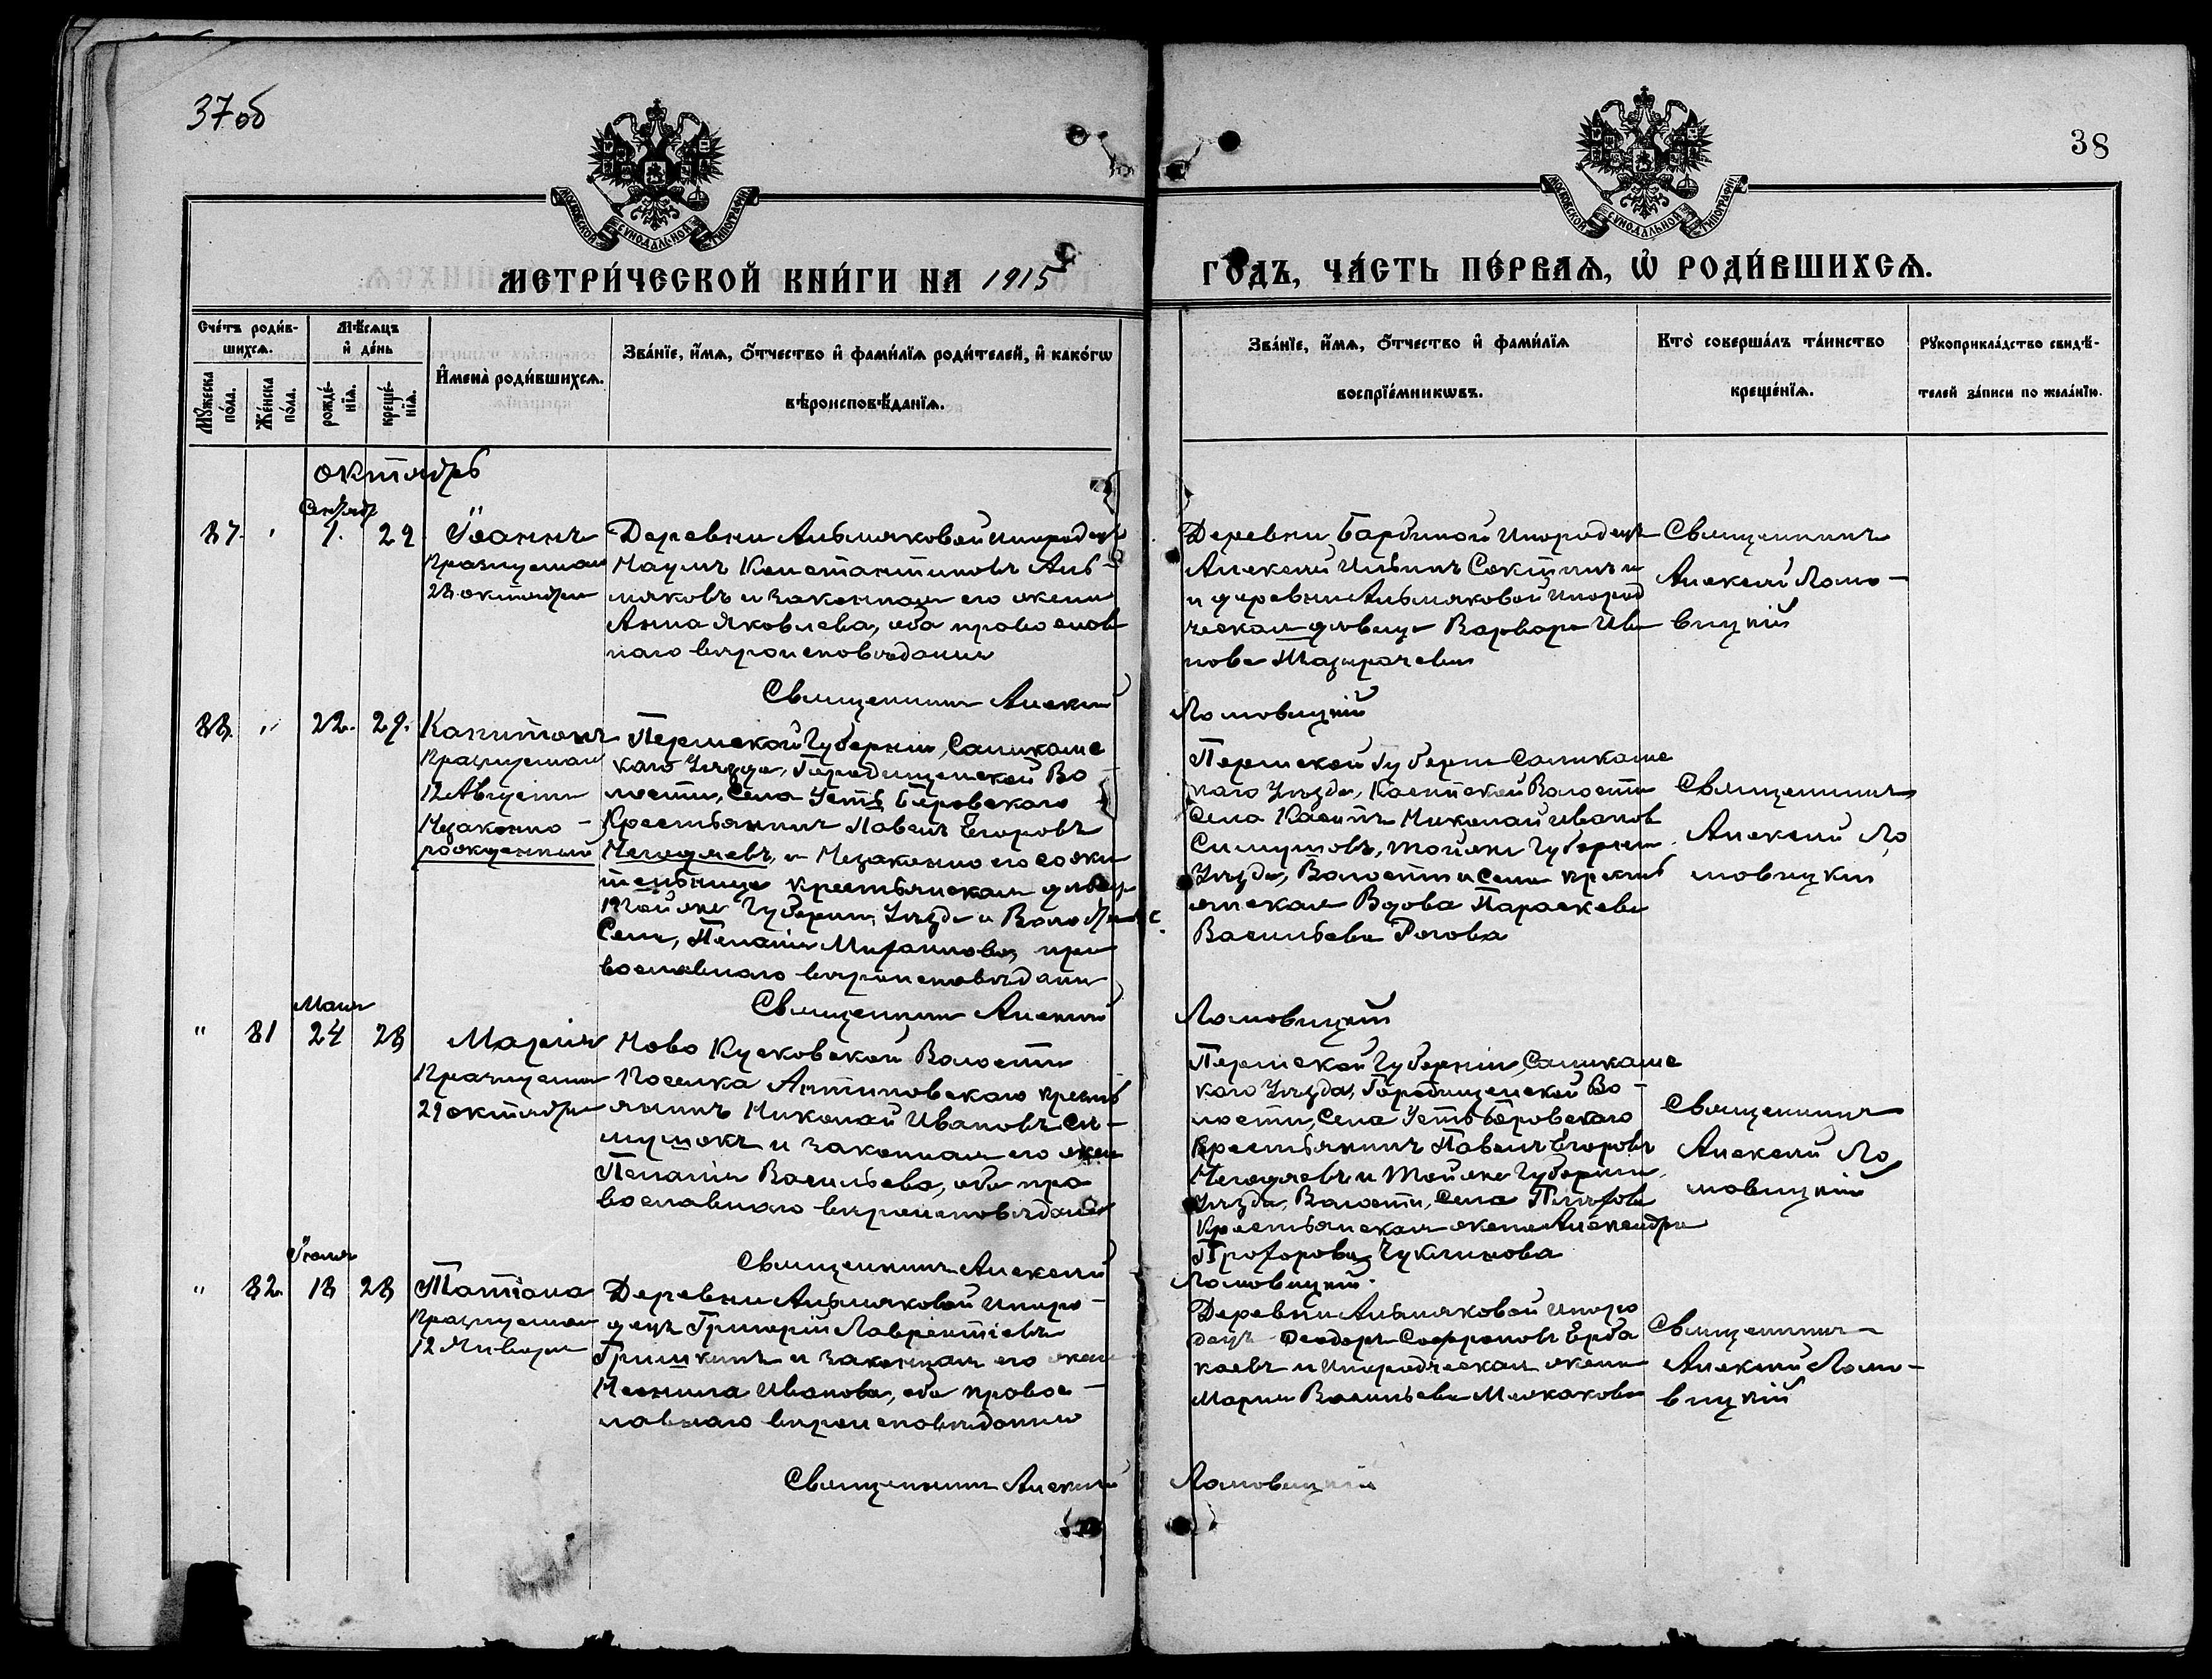 37 об
38
МОСКОВСКОЙ СѴНОДАЛЬНОЙ ТИПОГРАФІИ
МОСКОВСКОЙ СѴНОДАЛЬНОЙ ТИПОГРАФІИ
МЕТРИ́ЧЕСКОЙ КНИ́ГИ НА 1915
ГО́ДЪ, ЧА́СТЬ ПЕ́РВАѦ, Ѡ҆ РОДИ́ВШИХСѦ.
Сче́тъ роди́в-
шихсѧ.
Мꙋ́жеска
по́ла.
Же́нска
по́ла.
Мѣ́сѧцъ
и҆ де́нь
рожде́-
нїѧ.
креще́-
нїѧ.
И҆мена̀ роди́вшихсѧ.
Зва́нїе, и҆́мѧ, ѻ҆́тчество и҆ фамѝлїѧ роди́телей, и҆ како́гѡ
вѣроисповѣ́данїѧ.
Зва́нїе, и҆́мѧ, ѻ҆́тчество и҆ фами́лїѧ
воспрїе́мникѡвъ.
Кто̀ соверша́лъ та́инство
креще́нїѧ.
Рꙋкоприкла́дство свидѣ́-
телей за́писи по жела́нїю.
октябрь
87. " 1. 29
Іоаннъ
Празнуемый
28 октября
Деревни Альмяковой инородецъ
Наумъ Константиновъ Аль-
мяковъ и законная его жена
Анна Яковлева, оба православ
наго вѣроисповѣданія
Деревни Барбиной Инородецъ
Алексѣй Ильинъ
и деревни Альмяковой инород
ческая дѣвица Варвара Ива
нова
Священникъ
Алексѣй Ломо-
вицкій
Священникъ Алексѣй
Ломовицкій
88. " 22. 29.
Капитонъ
Празнуемый
12 Августа
Незаконно-
рожденный
Пермской Губерніи, Соликамс
каго Уѣзда, Городищенской Во-
лости, Села Усть Боровского
Крестьянинъ Павелъ Егоровъ
Негодяевъ, и Незаконно его сожи
тельница крестьянская дѣвица
той же Губерніи, Уѣзда и Волости
Села, Пелагія, пра
вославнаго вѣроисповѣданія
Пермской Губерніи Соликамс
каго Уѣзда, Косинской Волости
Села Косинъ Николай Иванов
той же Губерніи
Уѣзда, Волости и Села кресть
янская Вдова Параскева
Васильева Рогова
Священникъ
Алексѣй Ло
мовицкій
Священникъ Алексѣй
Ломовицкій
" 81
Мая
24 28
Марія
Празнуемая
29 октября
Ново Кусковской Волости
Поселка Антиповскаго кресть
янинъ Николай Ивановъ Си-
и законная его жена
Пелагія Васильева, оба пра
вославнаго вѣроисповѣданія
Пермской Губерніи, Соликамс
каго Уѣзда, Городищенской Во-
лости, Села Усть Боровского
Крестьянинъ Павелъ Егоровъ
Негодяевъ и той же Губерніи
Уѣзда, Волости, Села
Крестьянская жена Александра
Прохорова Чуклинова
Священникъ
Алексѣй Ло
мовицкій
Священникъ Алексѣй
Ломовицкій.
" 82.
Іюля
18 28
Татіана
Празнуемая
12 Января
Деревни Альмяковой Иноро-
децъ Григорій Лаврентіевъ
Гришкинъ и законная его жена
Неонила Иванова, оба правос-
лавнаго вѣроисповѣданія
Деревни Альмяковой Иноро
децъ Феодоръ Софроновъ Ерба
каевъ и Инородческая жена
Марія Васильева
Священникъ
Алексѣй Ломо-
вицкій
Священникъ Алексѣй
Ломовицкій